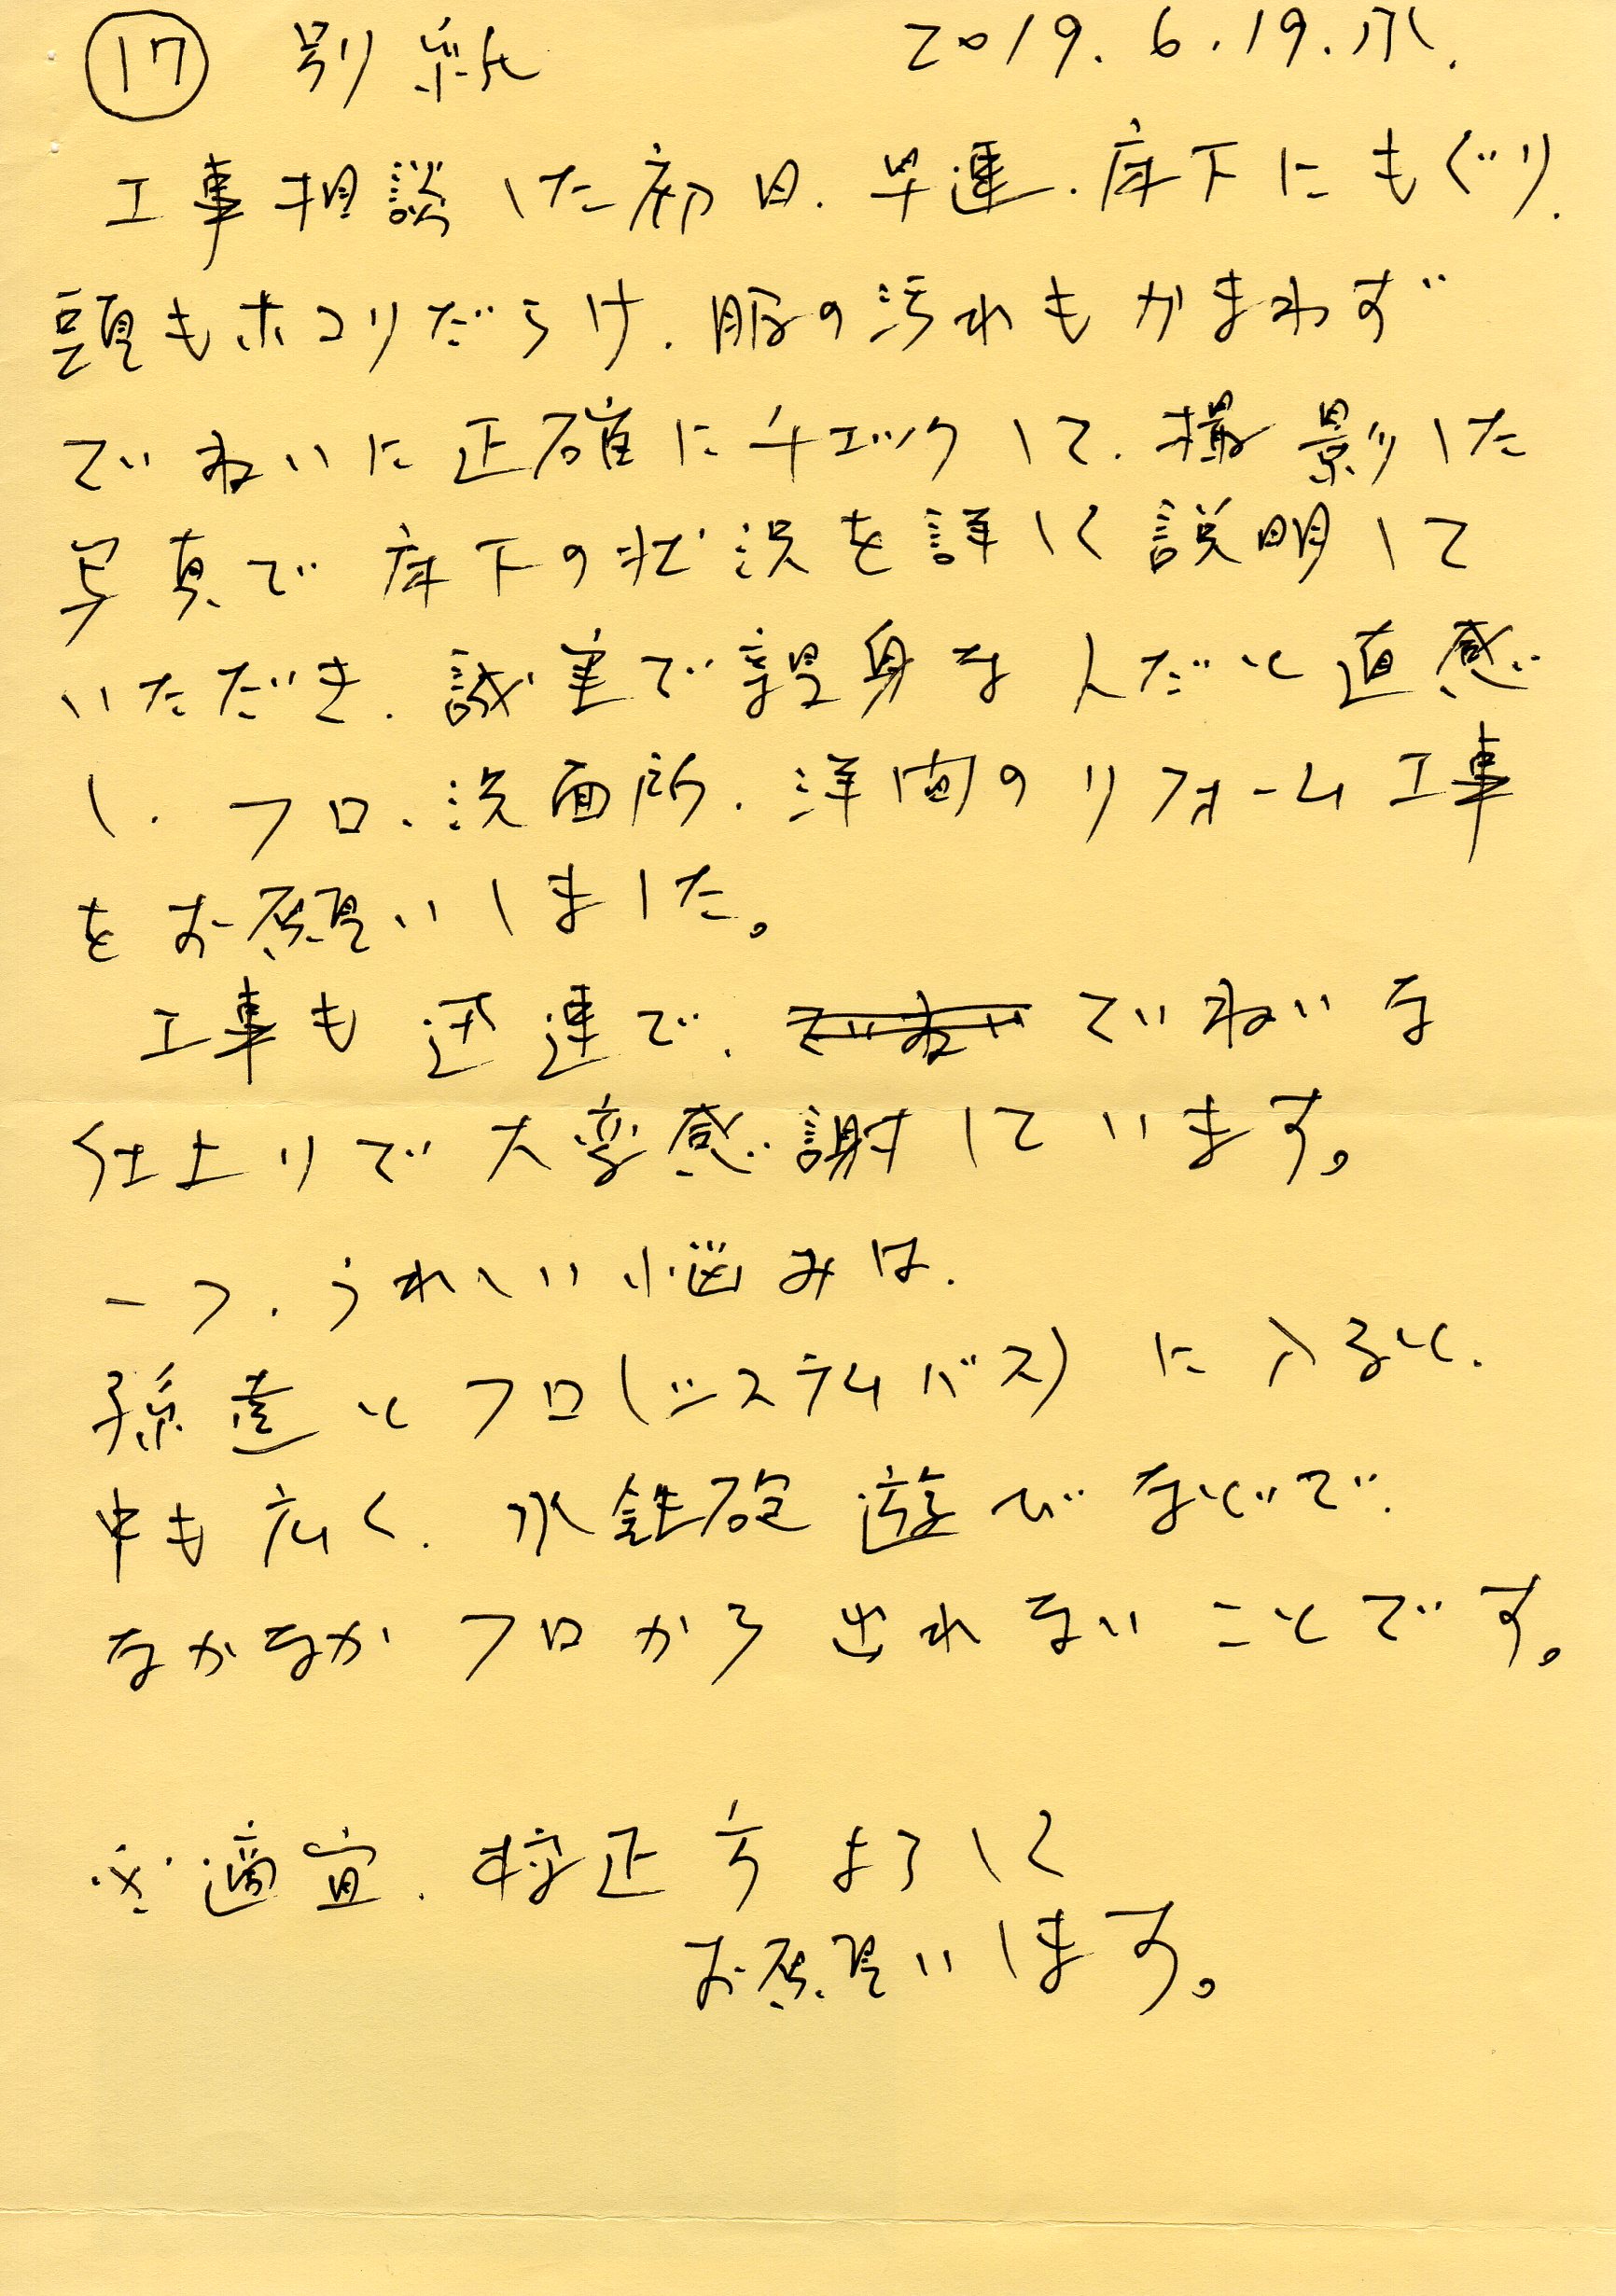 ⑰ 別紙 2019.6.19.水.
工事相談した初日、早速、床下にもぐり、
頭もホコリだらけ、服の汚れもかまわず
ていねいに正確にチェックして、撮影した
写真で床下の状況を詳しく説明して
いただき、誠実で親身な人だと直感
し、フロ、洗面所、洋間のリフォーム工事
をお願いしました。
工事も迅速で、ていねいな
仕上りで大変感謝しています。
一つ、うれしい悩みは、
孫達とフロ(システムバス)に入ると、
中も広く、水鉄砲遊びなどで、
なかなかフロから出れないことです。
※適宜、校正方よろしく
お願いします。